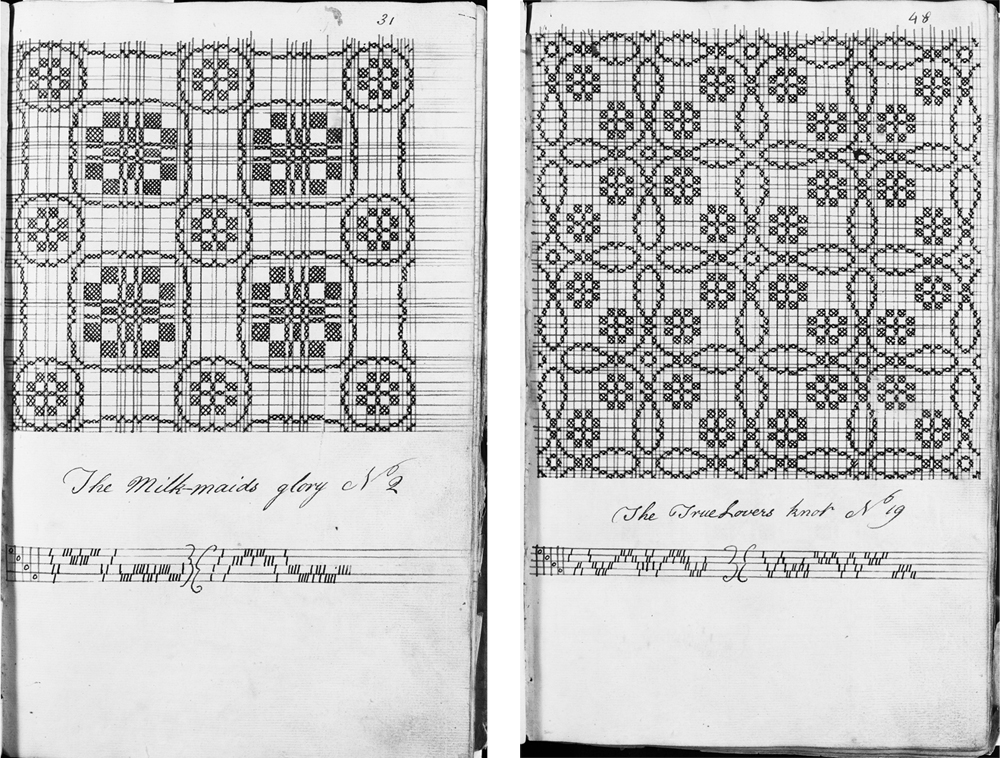 31
The Milk-maids glory No 2
48
The True Lovers knot No 19